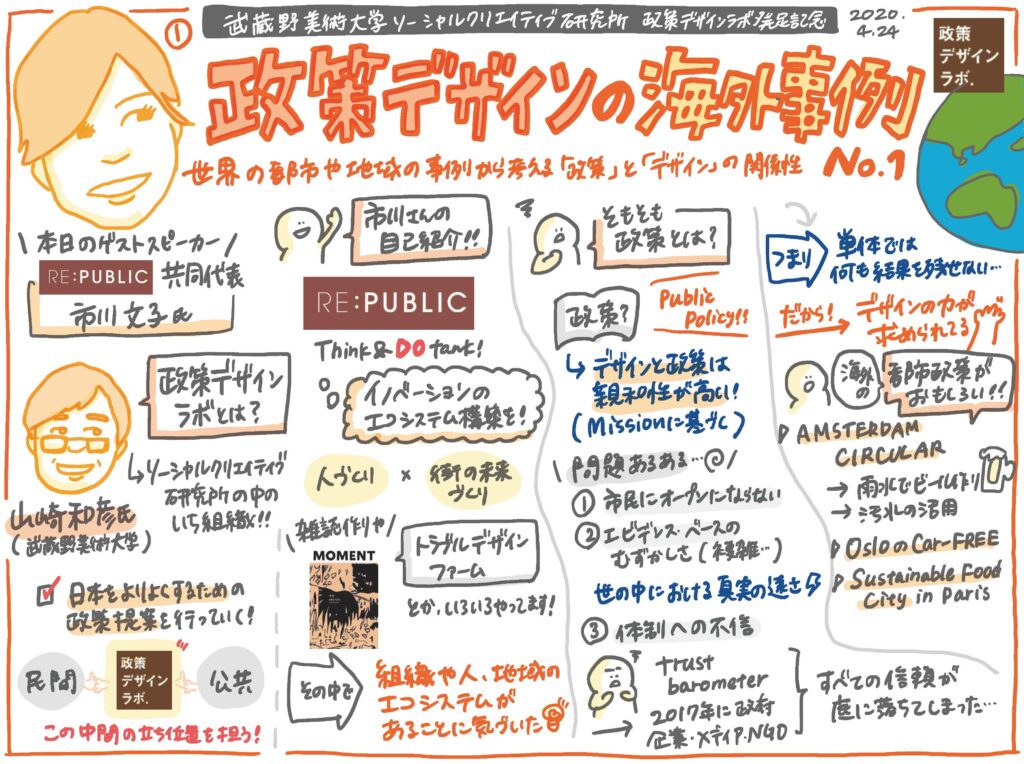 ①
武蔵野美術大学ソーシャルクリエイティブ研究所 政策デザインラボ発足記念
2020.
4.24
政策
デザイン
ラボ.
政策デザインの海外事例
世界の都市や地域の事例から考える「政策」と「デザイン」の関係性
No.1
\ 本日のゲストスピーカー /
RE:PUBLIC 共同代表
市川文子氏
政策デザイン
ラボとは?
↳ソーシャルクリエイティブ
研究所の中の
いち組織!!
山崎和彦氏
(武蔵野美術大学)
日本をよりよくするための
政策提案を行っていく!
民間
政策
デザイン
ラボ.
公共
この中間の立ち位置を担う!
市川さんの
自己紹介!!
RE:PUBLIC
Think & DO tank!
イノベーションの
エコシステム構築を!
人づくり × 街の未来
づくり
\ 雑誌作りや /
MOMENT
トラブルデザイン
ファーム
とか、いろいろやってます!
その中で
組織や人、地域の
エコシステムが
あることに気づいた
そもそも
政策とは?
政策?
Public
Policy!!
↳ デザインと政策は
親和性が高い!
(Missionに基づく)
\ 問題あるある… /
① 市民にオープンにならない
② エビデンス・ベースの
むずかしさ (複雑…)
世の中における真実の速さ
③ 体制への不信
trust
barometer
→ 2017年に政府
企業・メディア・NGO
すべての信頼が
底に落ちてしまった…
つまり
単体では
何も結果を残せない…
だから! → デザインの力が
求められてる
海外の
都市政策が
おもしろい!!
AMSTERDAM
CIRCULAR
→ 雨水でビール作り
→ 汚水の活用
OsloのCar-FREE
Sustainable Food
City in Paris